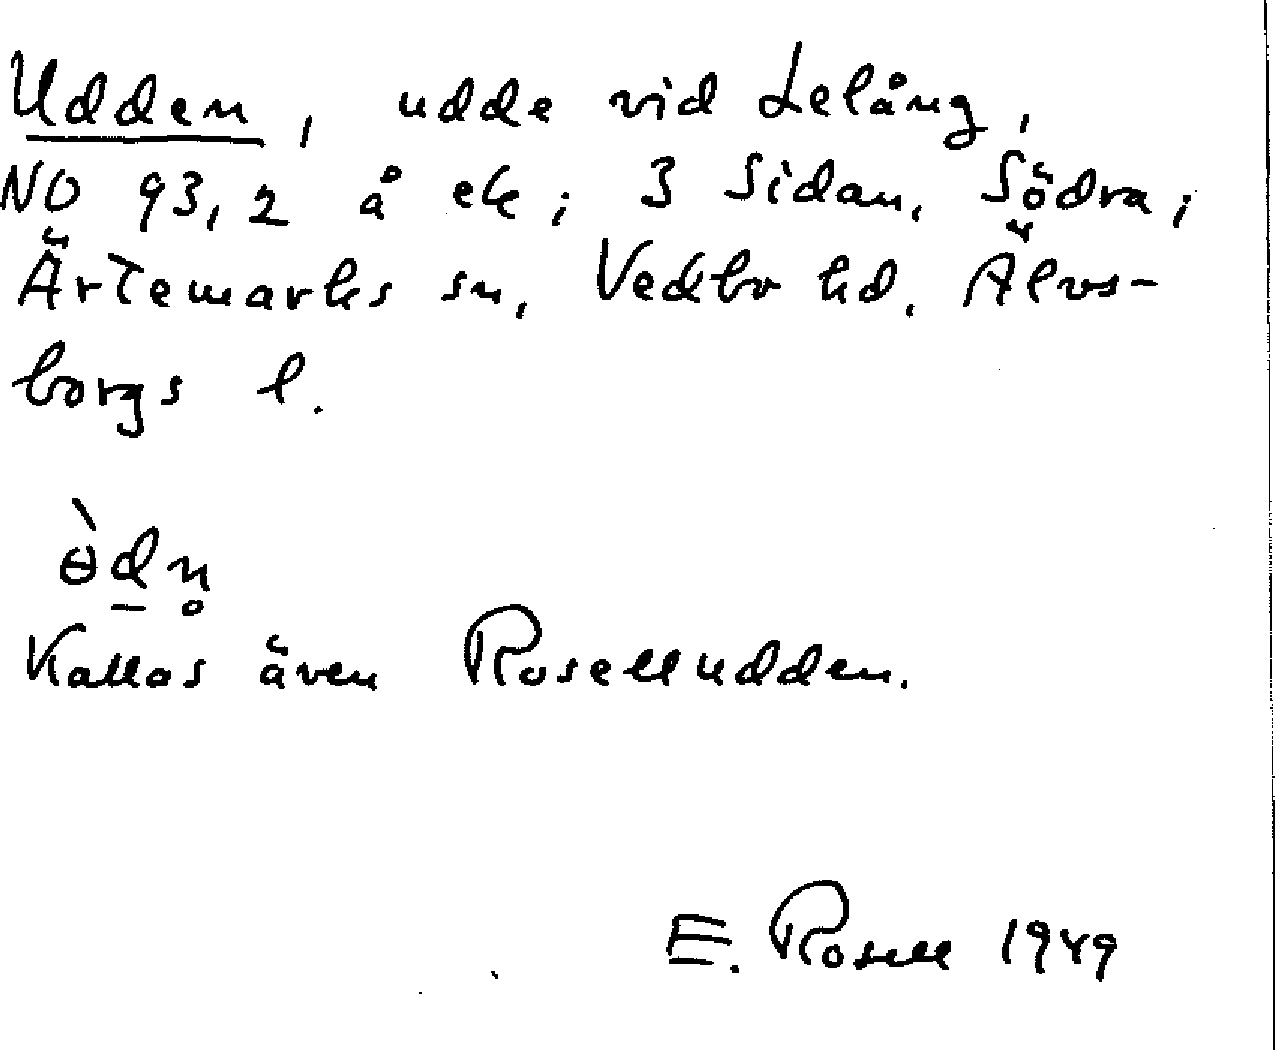 Udden, udde vid Lelång,
NO 93,2 å ek; 3 Sidan, Södra;
Ärtemarks sn, Vedbo hd. Älvs-
borgs l.
ɵ̀d̲n̥
Kallas även Roselludden.
E. Rosell 1949